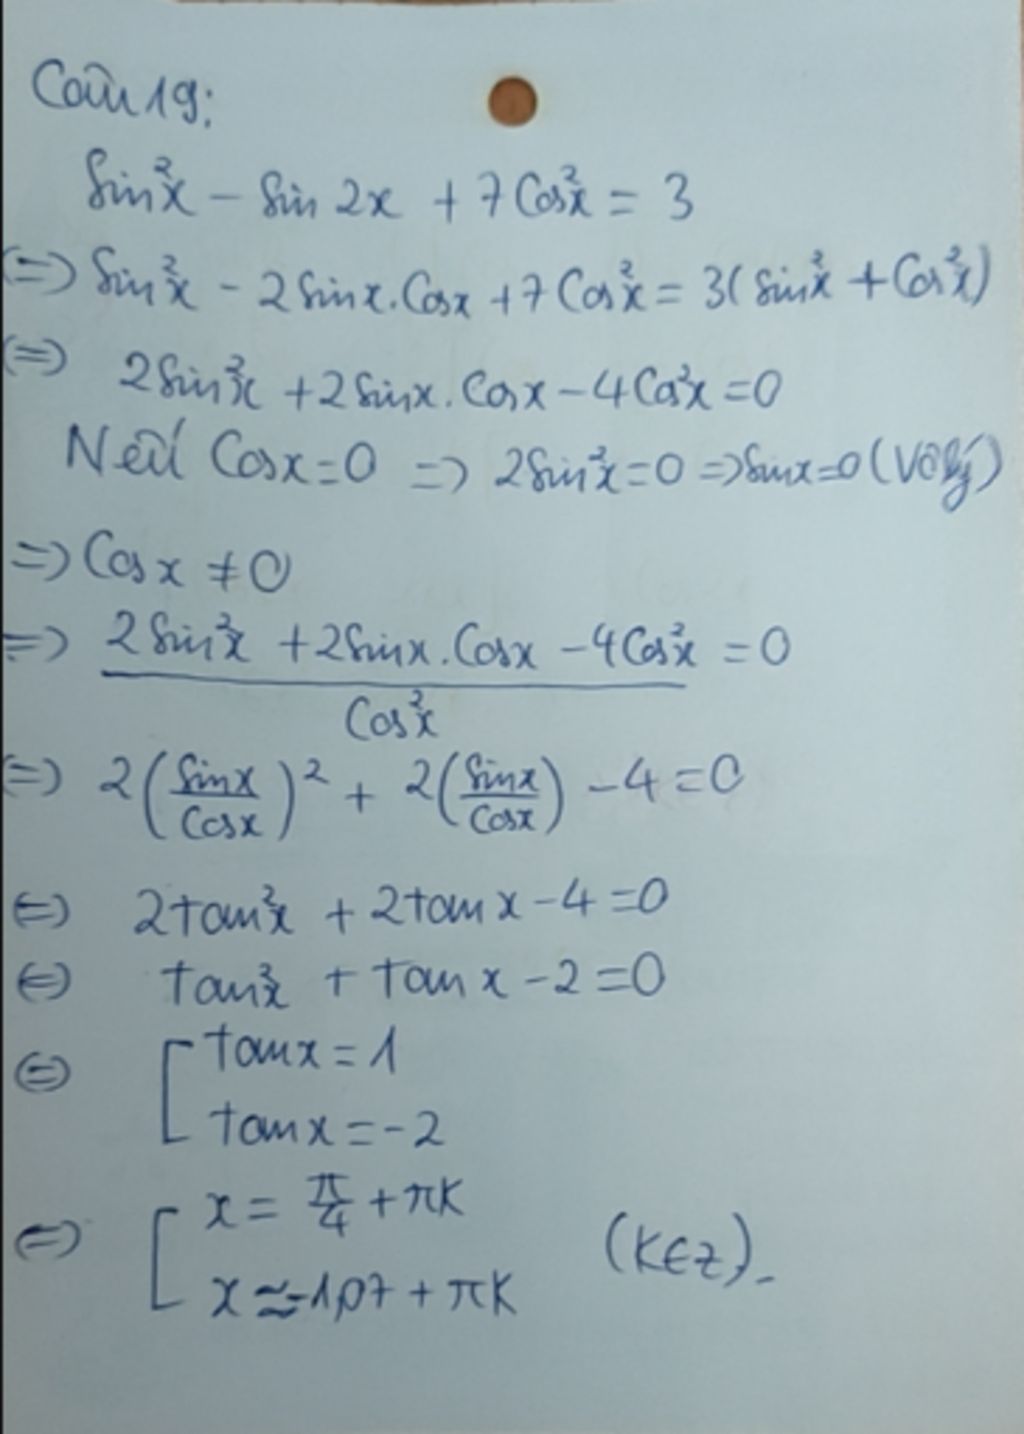 Câu 19:
Sin²x - Sin 2x + 7 Cos²x = 3
(=) Sin²x - 2 Sinx.Cosx + 7 Cos²x = 3(Sin²x + Cos²x)
(=) 2 Sin²x + 2 Sinx.Cosx - 4 Cos²x = 0
Nếu Cosx = 0 => 2 Sin²x = 0 => Sinx = 0 (Vô lý)
=> Cosx ≠ 0
=> (2 Sin²x + 2 Sinx.Cosx - 4 Cos²x)/Cos²x = 0
(=) 2(Sinx/Cosx)² + 2(Sinx/Cosx) - 4 = 0
(=) 2tan²x + 2tanx - 4 = 0
(=) tan²x + tanx - 2 = 0
(=) [ tanx = 1
tanx = -2
(=) [ x = π/4 + πK
x ≈ -1,07 + πK (K∈Z).